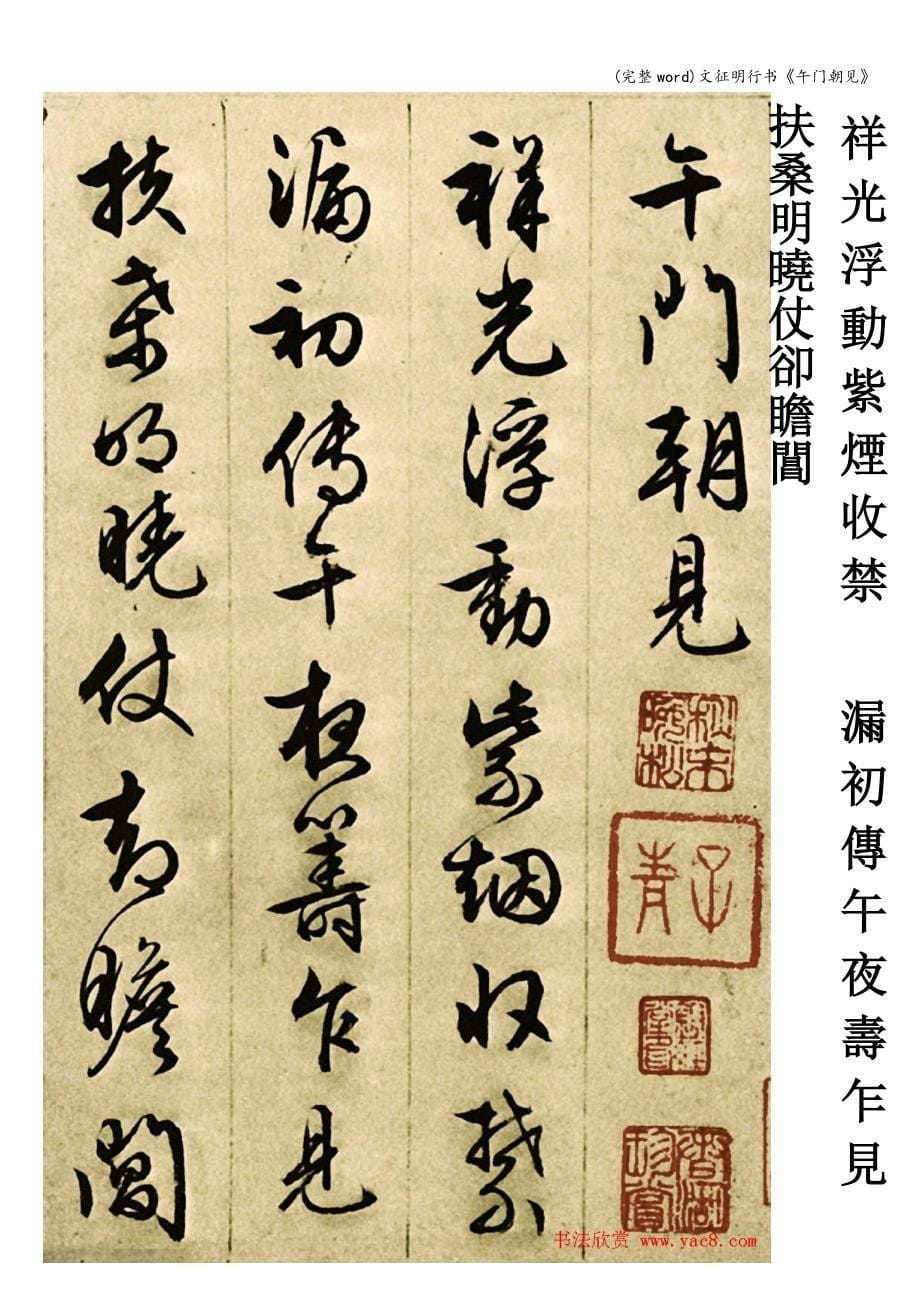 (完整word)文征明行书《午门朝见》
祥光浮動紫煙收禁 漏初傳午夜壽乍見
扶桑明曉仗卻瞻閶
午門朝見
子青
祥光浮動紫烟收禁
漏初傳午夜籌乍見
扶桑明曉仗却瞻閶
书法欣赏 www.yac8.com